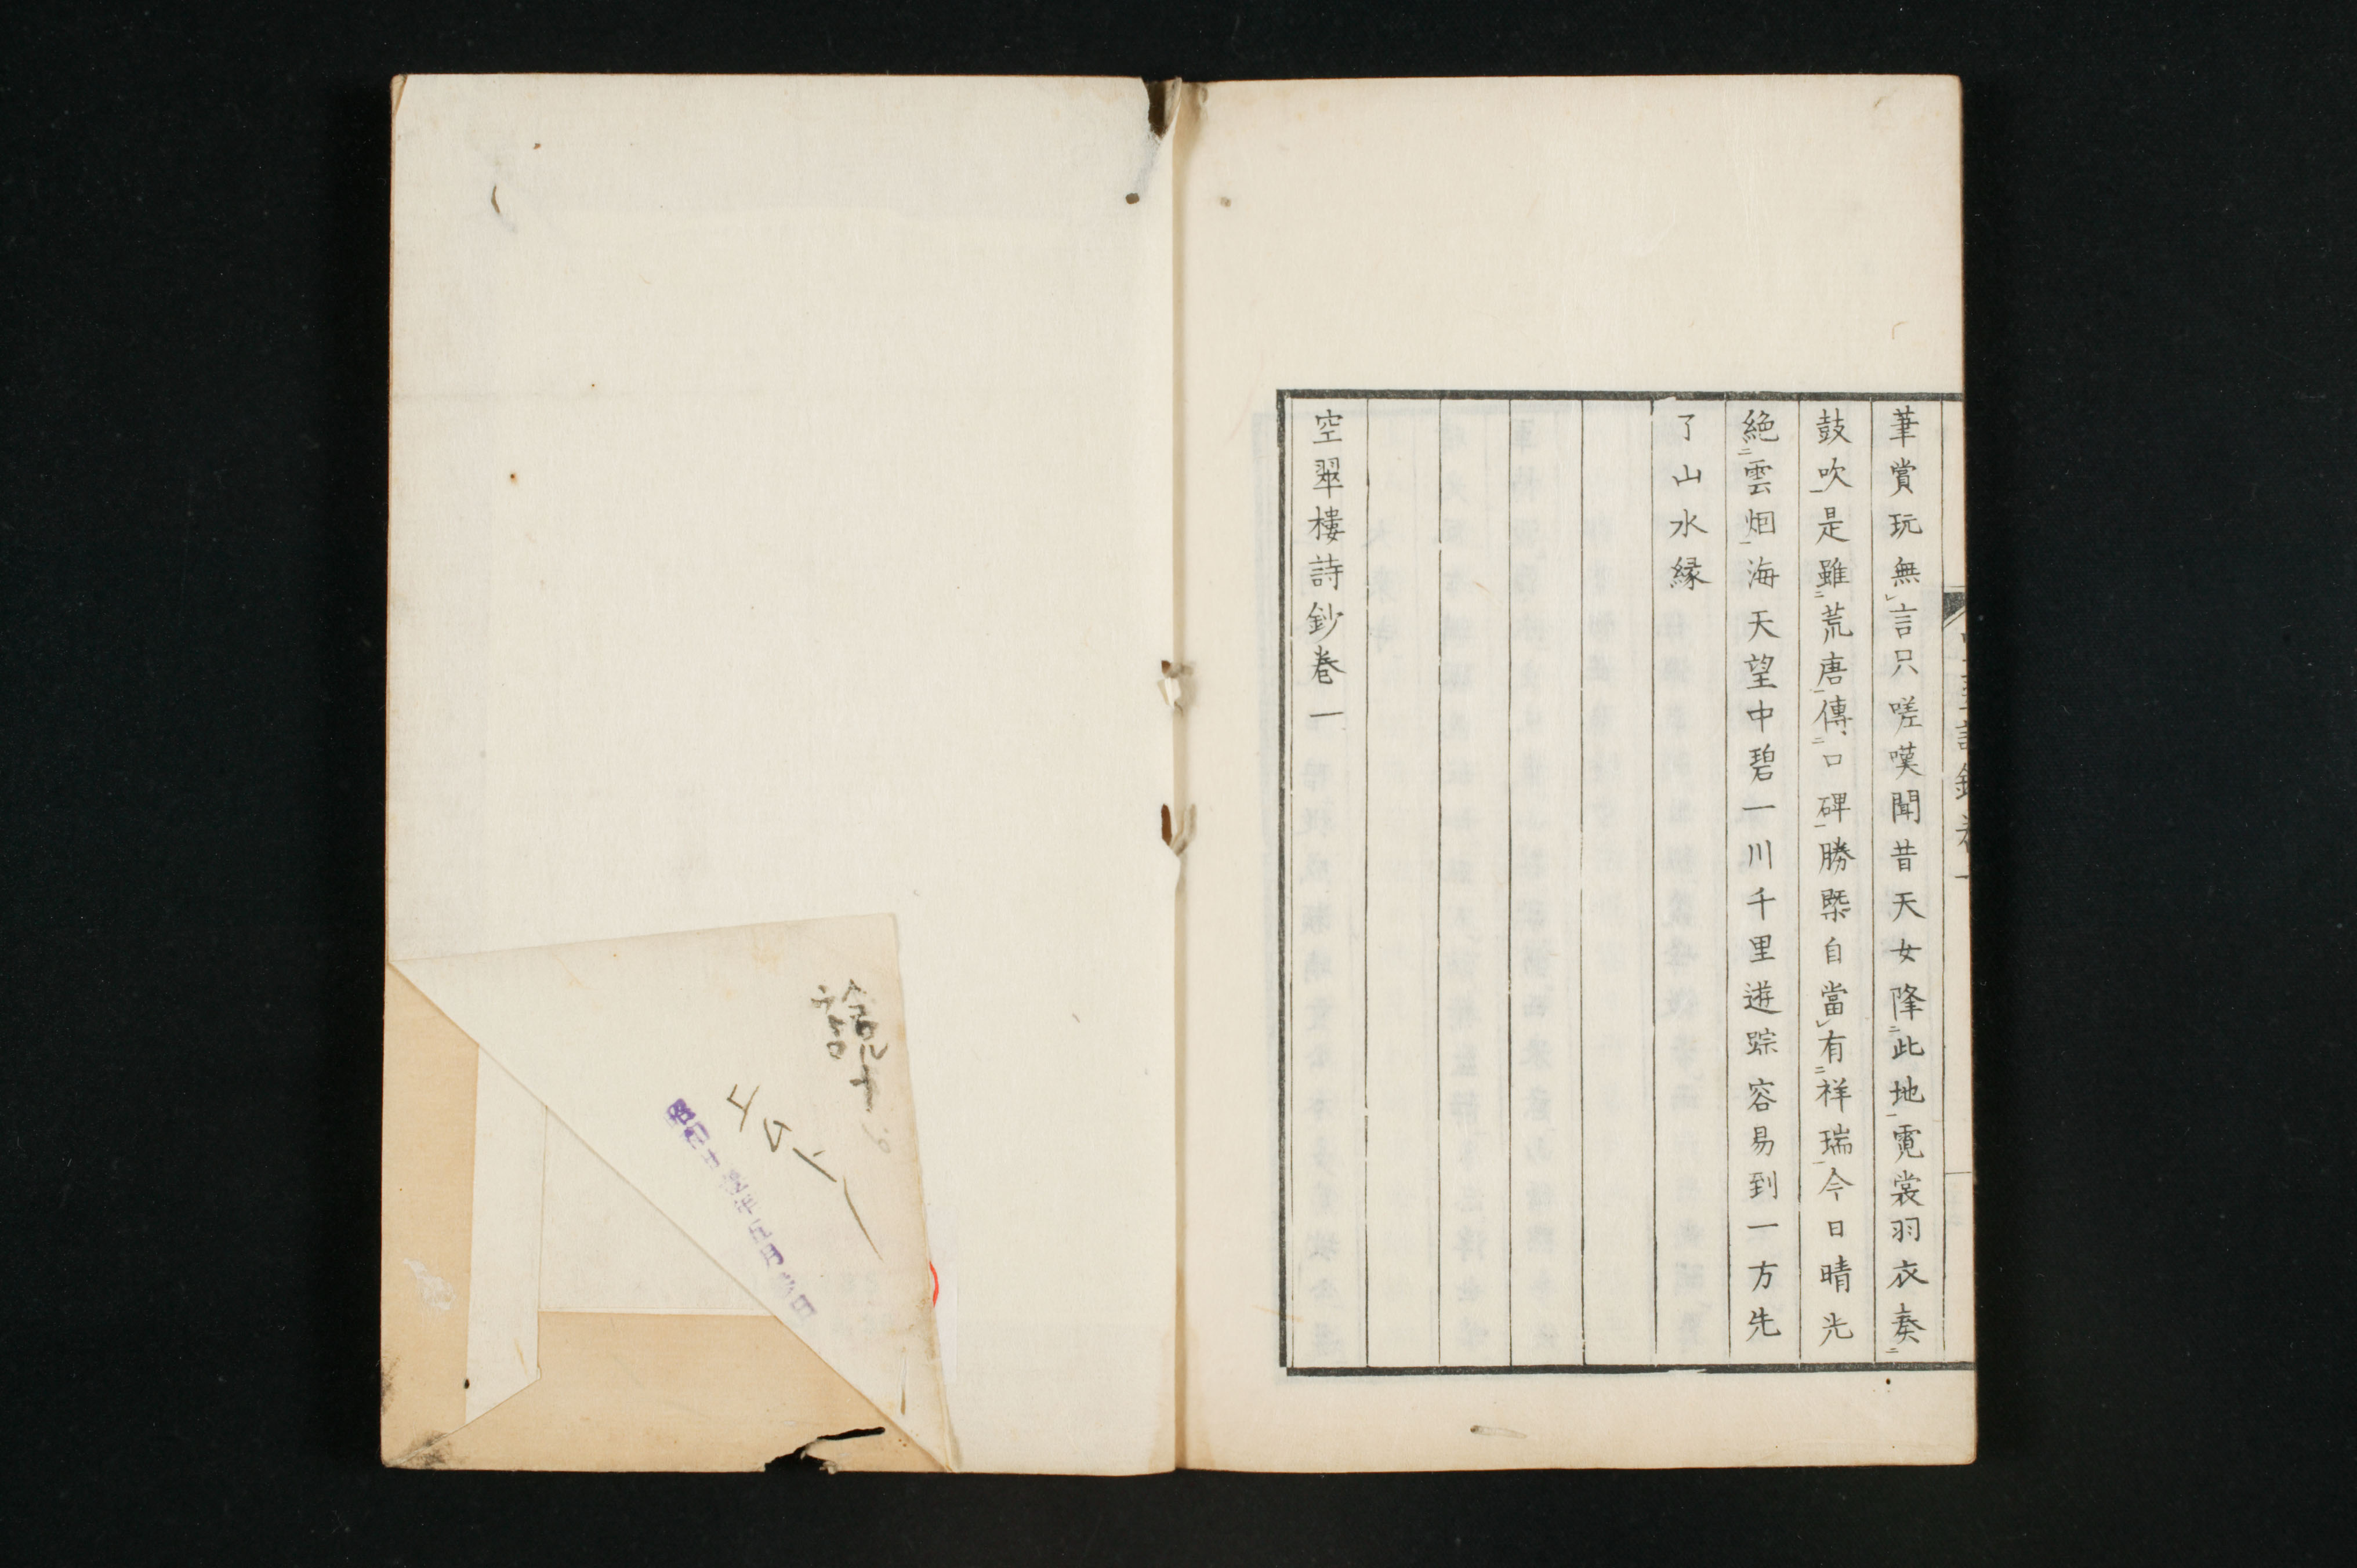 筆賞玩無言只嗟嘆聞昔天女降二此地一霓裳羽衣奏二
鼓吹一是雖二荒唐一傳二口碑一勝槩自當有二祥瑞一今日晴光
絶二雲烟一海天望中碧一川千里遊踪容易到一方先
了山水縁
空翠樓詩鈔卷一